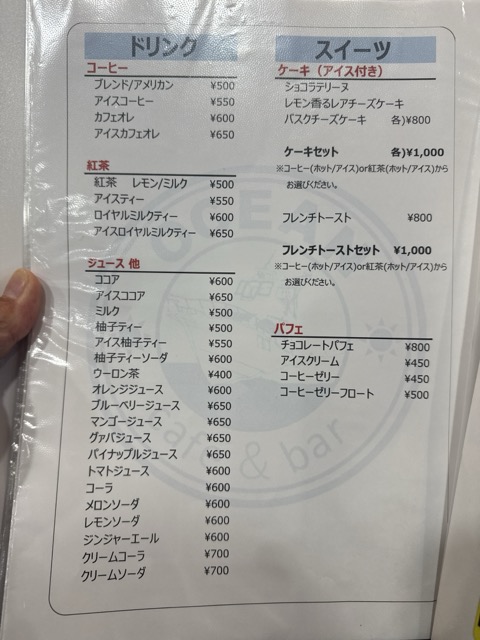 ドリンク
コーヒー
ブレンド/アメリカン ¥500
アイスコーヒー ¥550
カフェオレ ¥600
アイスカフェオレ ¥650
紅茶
紅茶 レモン/ミルク ¥500
アイスティー ¥550
ロイヤルミルクティー ¥600
アイスロイヤルミルクティー ¥650
ジュース 他
ココア ¥600
アイスココア ¥650
ミルク ¥500
柚子ティー ¥500
アイス柚子ティー ¥550
柚子ティーソーダ ¥600
ウーロン茶 ¥400
オレンジジュース ¥600
ブルーベリージュース ¥650
マンゴージュース ¥650
グァバジュース ¥650
パイナップルジュース ¥650
トマトジュース ¥600
コーラ ¥600
メロンソーダ ¥600
レモンソーダ ¥600
ジンジャーエール ¥600
クリームコーラ ¥700
クリームソーダ ¥700
スイーツ
ケーキ（アイス付き）
ショコラテリーヌ
レモン香るレアチーズケーキ
バスクチーズケーキ 各)¥800
ケーキセット 各)¥1,000
※コーヒー(ホット/アイス)or紅茶(ホット/アイス)から
お選びください。
フレンチトースト ¥800
フレンチトーストセット ¥1,000
※コーヒー(ホット/アイス)or紅茶(ホット/アイス)から
お選びください。
パフェ
チョコレートパフェ ¥800
アイスクリーム ¥450
コーヒーゼリー ¥450
コーヒーゼリーフロート ¥500
OCEAN
cafe & bar